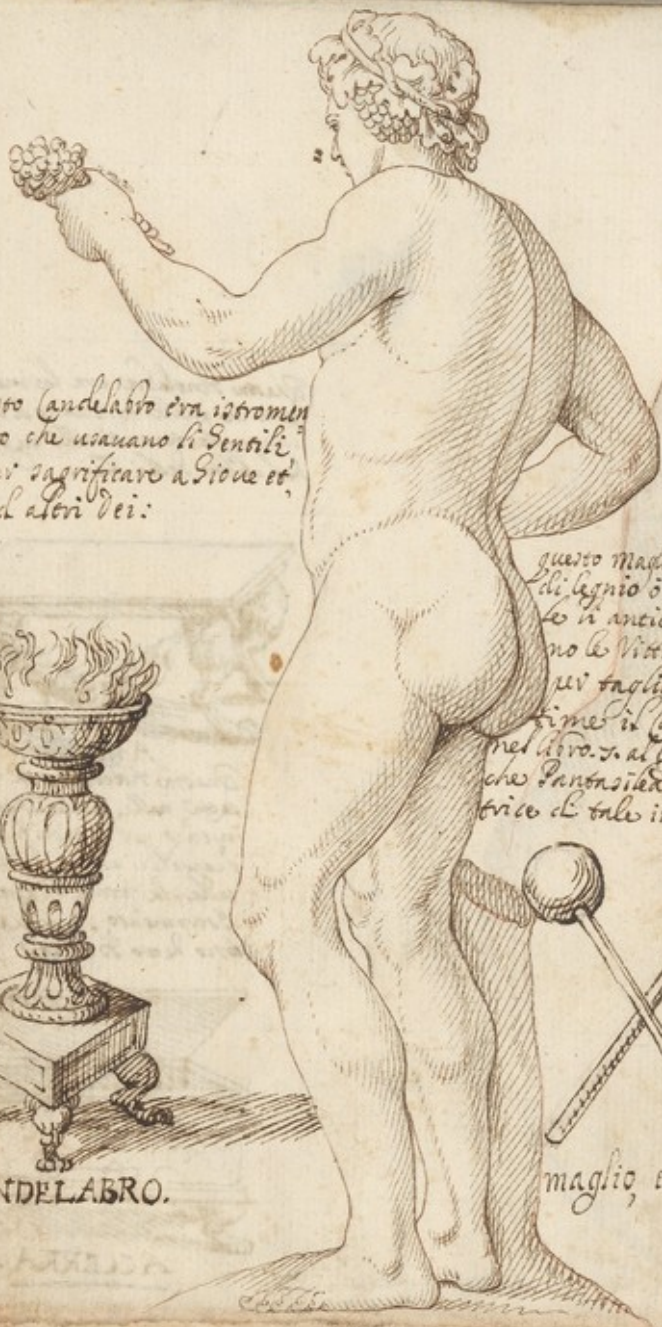 to Candelabro era istromen
o che usavano li Gentili
r sagrificare a Giove et
d altri Dei:
NDELABRO.
questo mag
di legnio o
le li antic
no le Vitt
per tagli
time il
nel libro. al
che Pantasilea
trice di tale i
maglio, e